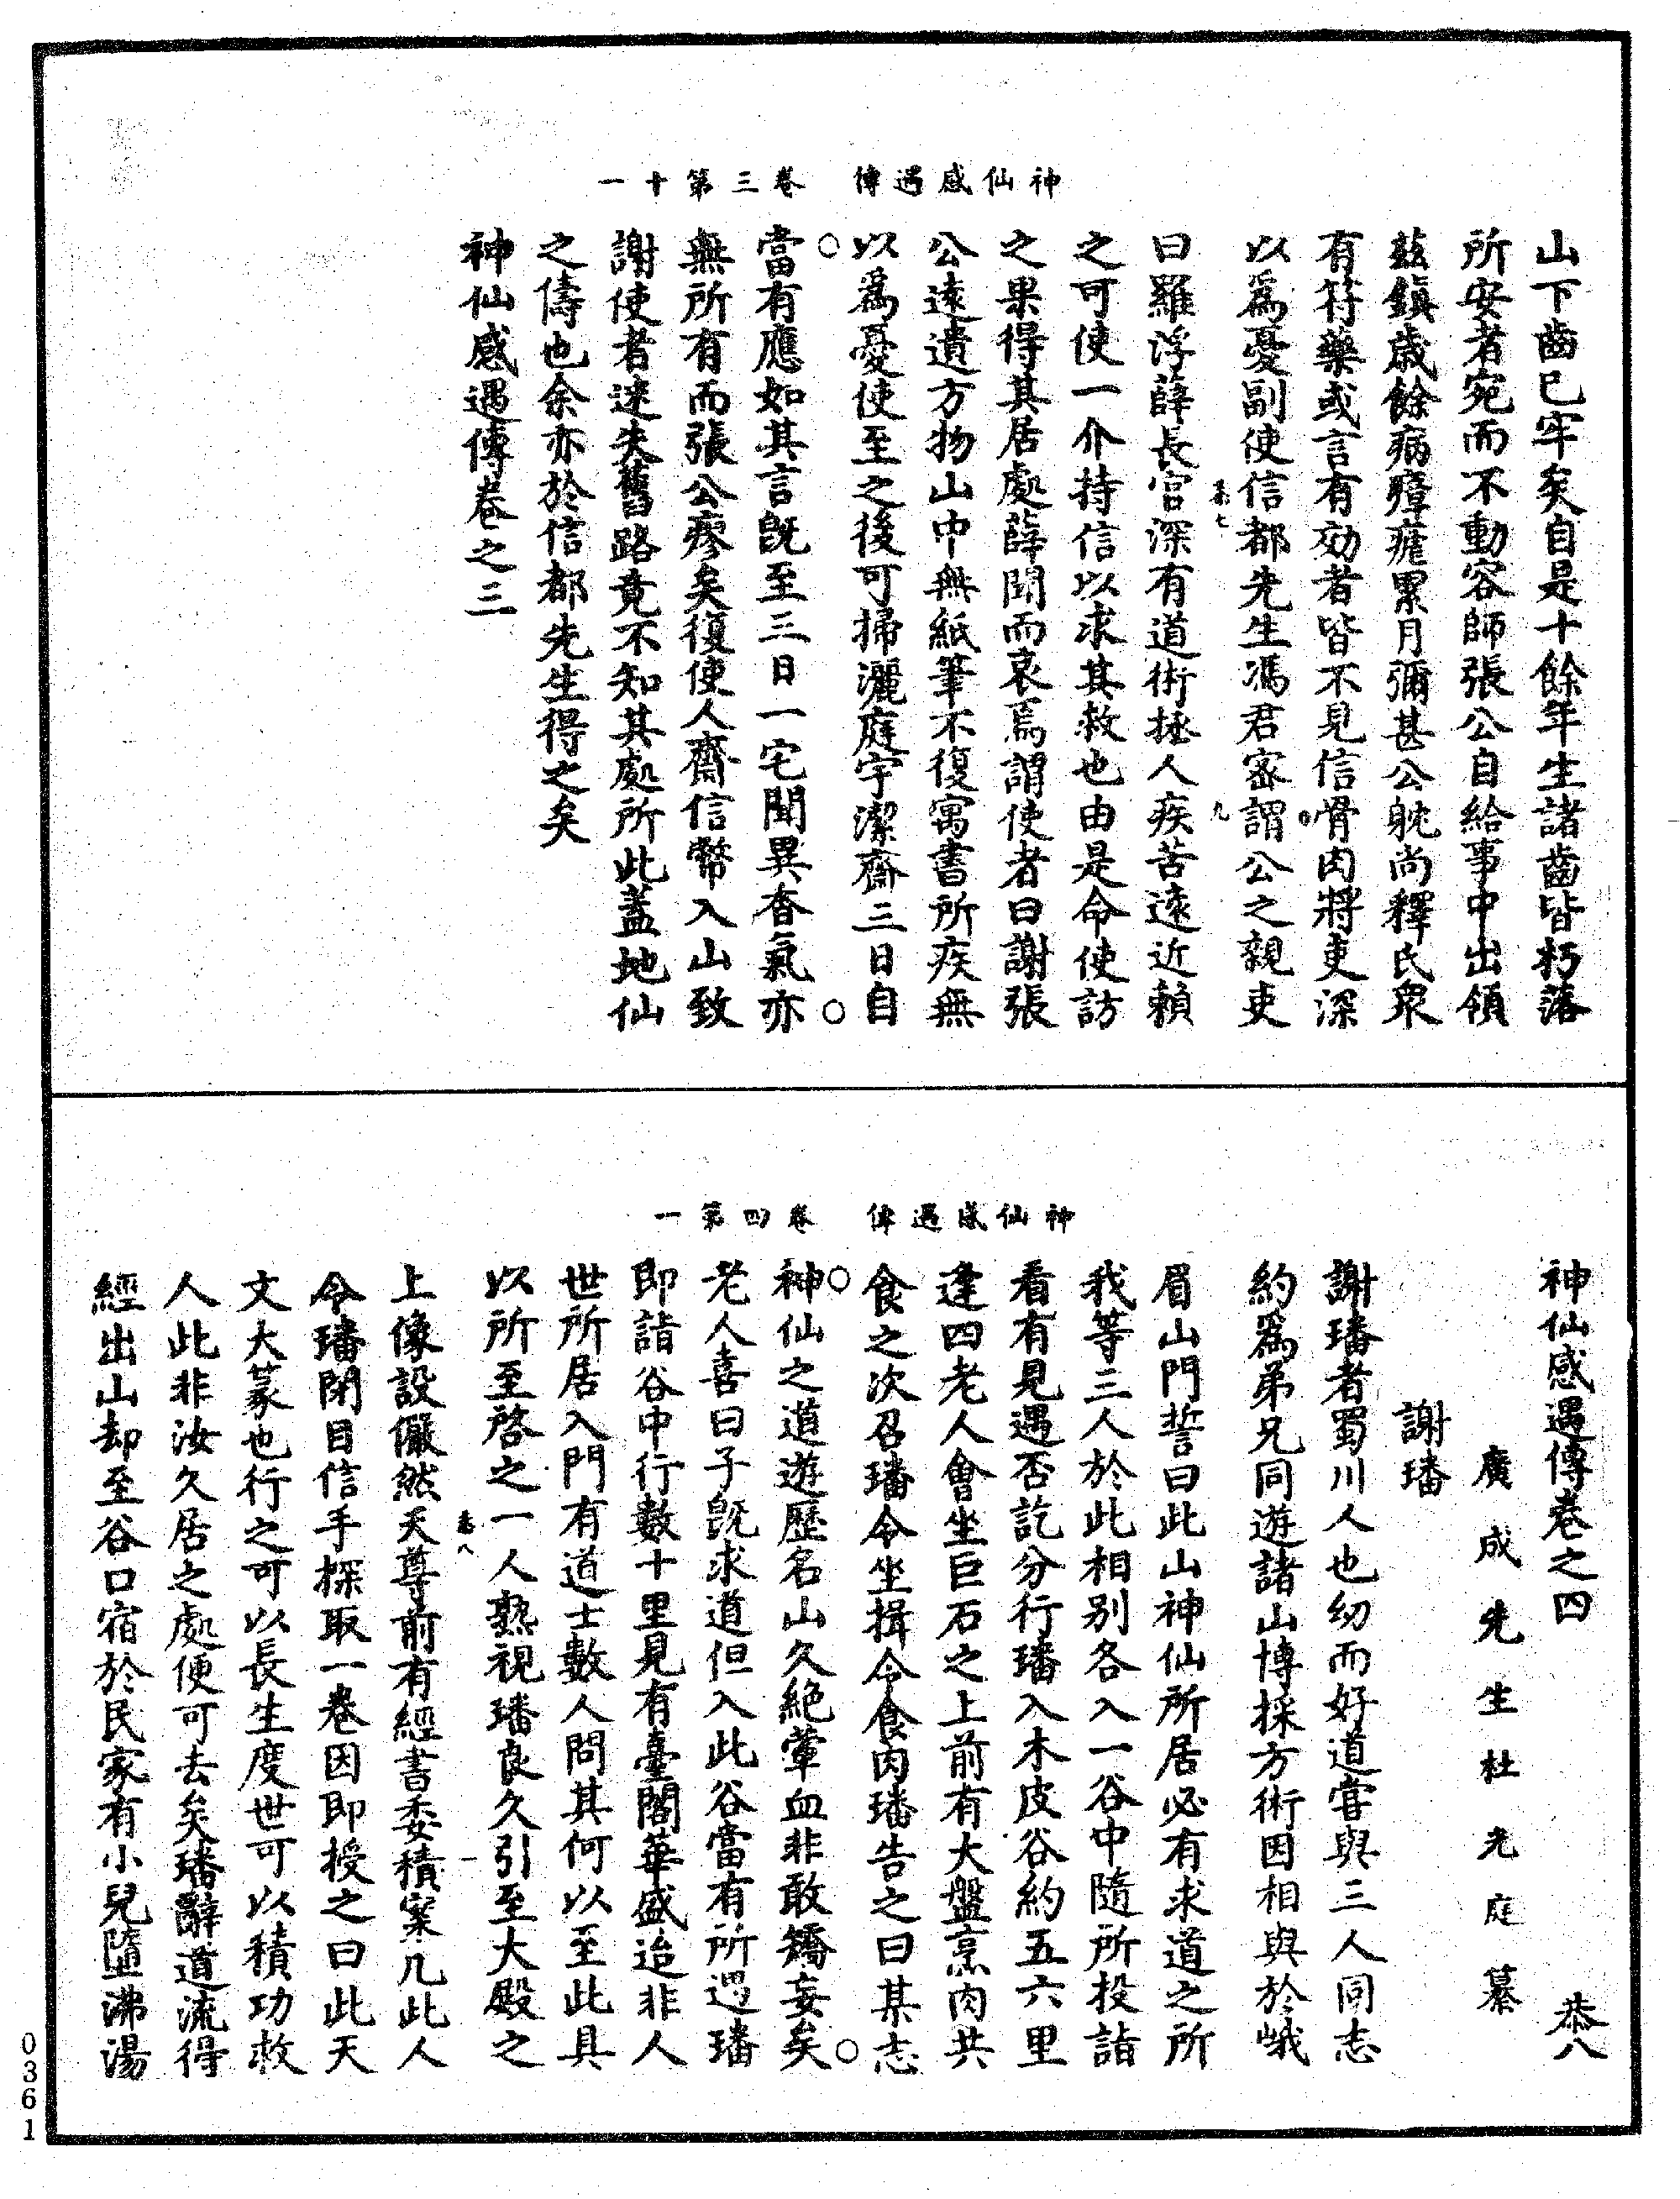 神仙感遇傳　卷三第十一
山下齒已牢矣自是十餘年生諸齒皆朽落
所安者宛而不動容師張公自給事中出領
玆鎮歲餘病瘴瘧累月彌甚公躭尚釋氏衆
有符藥或言有効者皆不見信骨肉將吏深
以爲憂副使信都先生馮君密謂公之親吏
恭七
九
曰羅浮薛長官深有道術拯人疾苦遠近賴
之可使一介持信以求其救也由是命使訪
之果得其居處薛聞而哀焉謂使者曰謝張
公遠遺方物山中無紙筆不復寓書所疾無
以爲憂使至之後可掃灑庭宇潔齋三日自
當有應如其言旣至三日一宅聞異香氣亦
無所有而張公瘳矣復使人齎信幣入山致
謝使者迷失舊路竟不知其處所此蓋地仙
之儔也余亦於信都先生得之矣
神仙感遇傳卷之三
神仙感遇傳　卷四第一
神仙感遇傳卷之四　恭八
廣成先生杜光庭纂
謝璠
謝璠者蜀川人也幼而好道甞與三人同志
約爲弟兄同遊諸山博採方術因相與於峨
眉山門誓曰此山神仙所居必有求道之所
我等三人於此相別各入一谷中隨所投詣
看有見遇否訖分行璠入木皮谷約五六里
逢四老人會坐巨石之上前有大盤烹肉共
食之次召璠令坐揖令食肉璠告之曰某志
神仙之道遊歷名山久絶葷血非敢矯妄矣
老人喜曰子旣求道但入此谷當有所遇璠
即詣谷中行數十里見有臺閣華盛迨非人
世所居入門有道士數人問其何以至此具
以所至啓之一人熟視璠良久引至大殿之
恭八
一
上像設儼然天尊前有經書委積案几此人
令璠閉目信手探取一卷因即授之曰此天
文大篆也行之可以長生度世可以積功救
人此非汝久居之處便可去矣璠辭道流得
經出山却至谷口宿於民家有小兒墮沸湯
0361